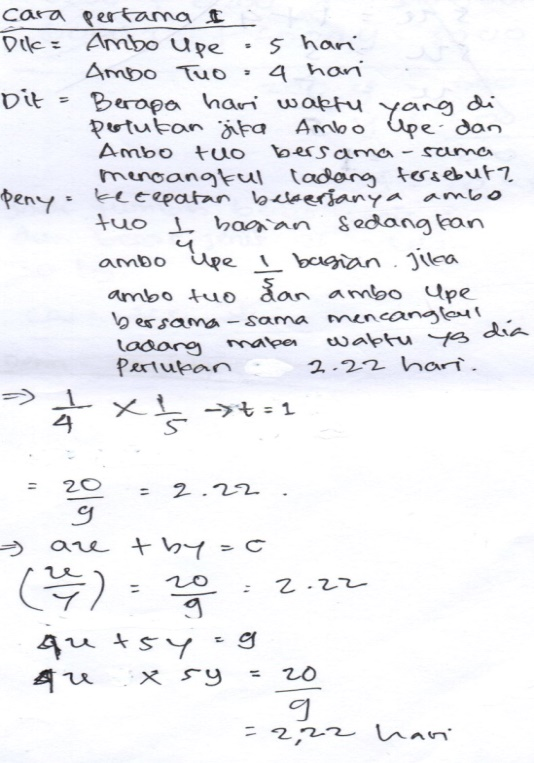 Cara pertama 1 :
Dik = Ambo Upe = 5 hari
Ambo Tuo = 4 hari
Dit = Berapa hari waktu yang di
perlukan jika Ambo Upe dan
Ambo tuo bersama-sama
mencangkul ladang tersebut?
Peny = kecepatan bekerjanya ambo
tuo 1/4 bagian sedangkan
ambo Upe 1/5 bagian. jika
ambo tuo dan ambo Upe
bersama-sama mencangkul
ladang maka waktu yg dia
perlukan 2.22 hari.
⇒ 1/4 × 1/5 → t = 1
= 20/9 = 2.22 .
⇒ ax + by = c
(x/y) = 20/9 = 2.22
4x + 5y = 9
4x × 5y = 20/9
= 2,22 hari